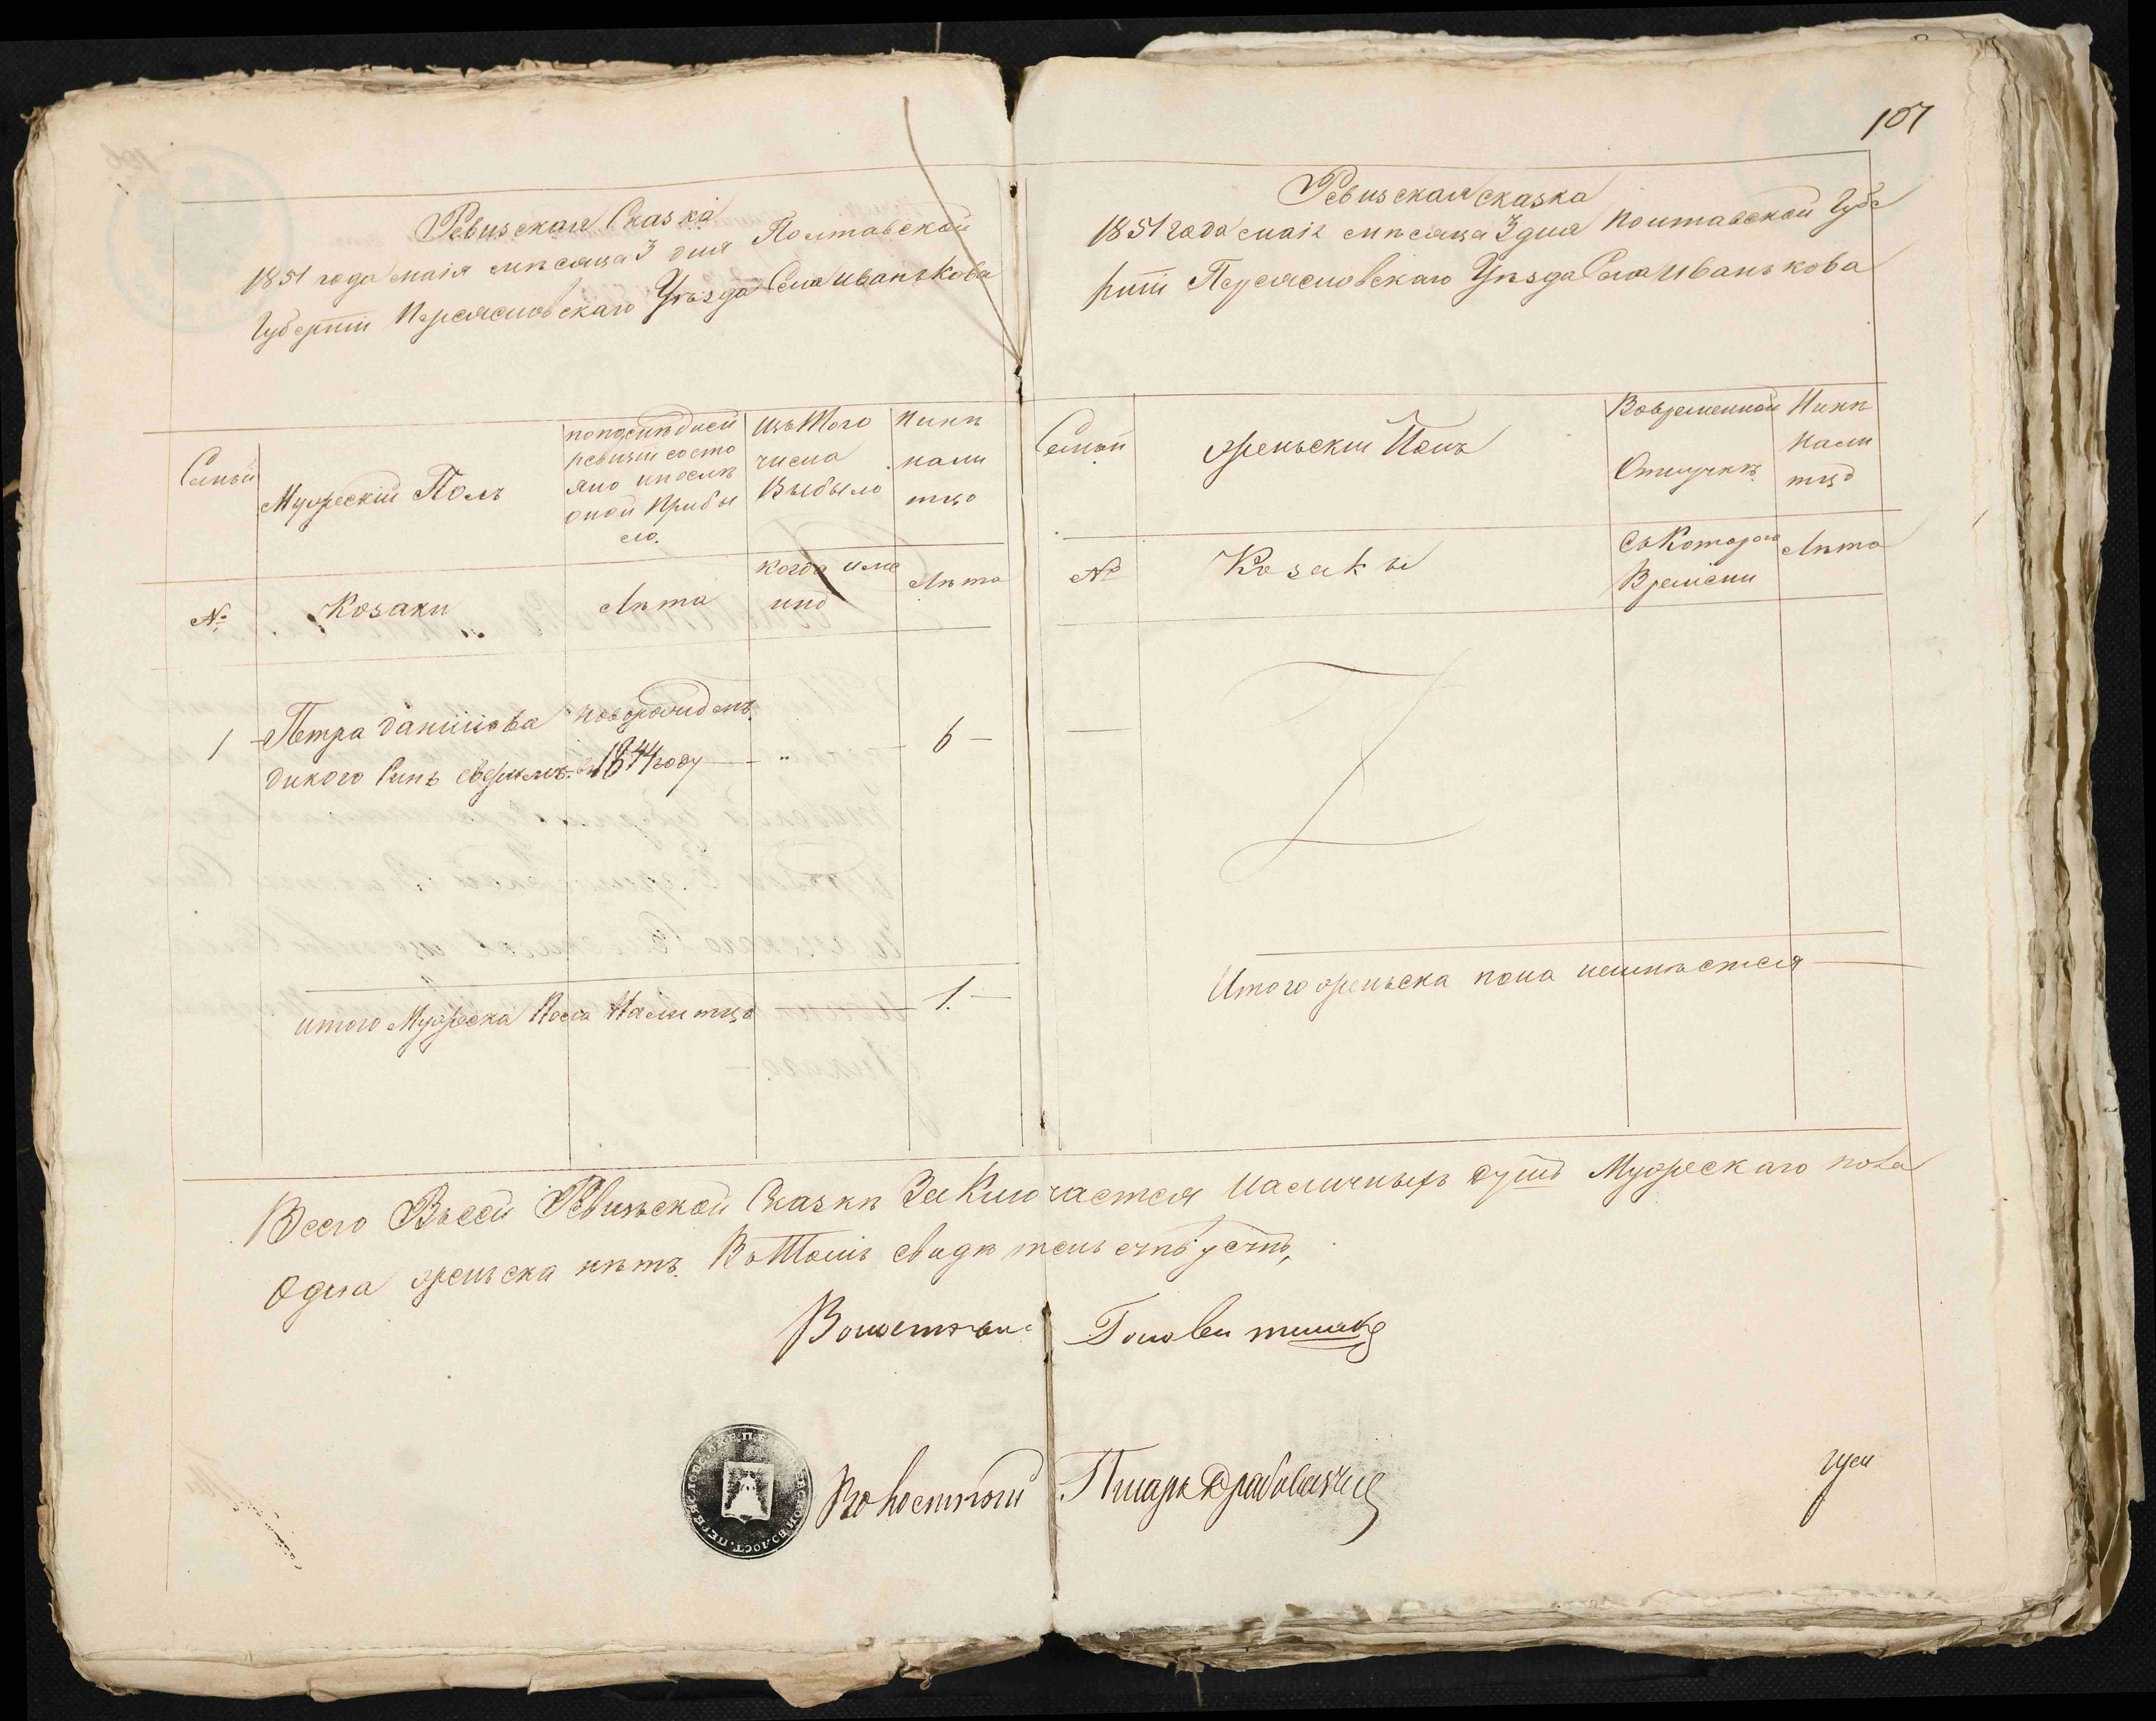 107
Ревизская Сказка
1851 года маія месяца 3 дня Полтавской
Губерніи Переясловскаго Уѣзда Села Иванькова
Семьи
Мужескій Полъ
по последней
ревизіи состо
яло и после
оной Прибы
ло.
Изътого
числа
Выбыло
Нинѣ
нали
тцо
№
Козаки
Лѣта
когда име
нно
Лѣта
1
Петра данилова
дикого Синъ
новорожденъ
1844 году
"
6
итого Мужеска Пола Налитцо
1.
Ревизская сказка
1851 года маія мѣсяца 3 дня Полтавской Губе
рніи Переясловскаго Уѣзда Села Иванькова
Семьи
женьскій Полъ
Вовременной
Отлучкѣ
Нинѣ
нали
тцо
№
Козаки
Съ Котораго
Времени
Лѣта
Итого женьска пола неимѣется
Всего Въсей Ревизьской Сказкѣ Заключается Наличныхъ душъ Мужескаго пола
Одна женьска нѣтъ. ВъТомъ свидѣтельствуетъ,
Волостный Голова
Волостной Писарь
ПЕРЕЯСЛОВСКОЕ ВОЛОСТ.